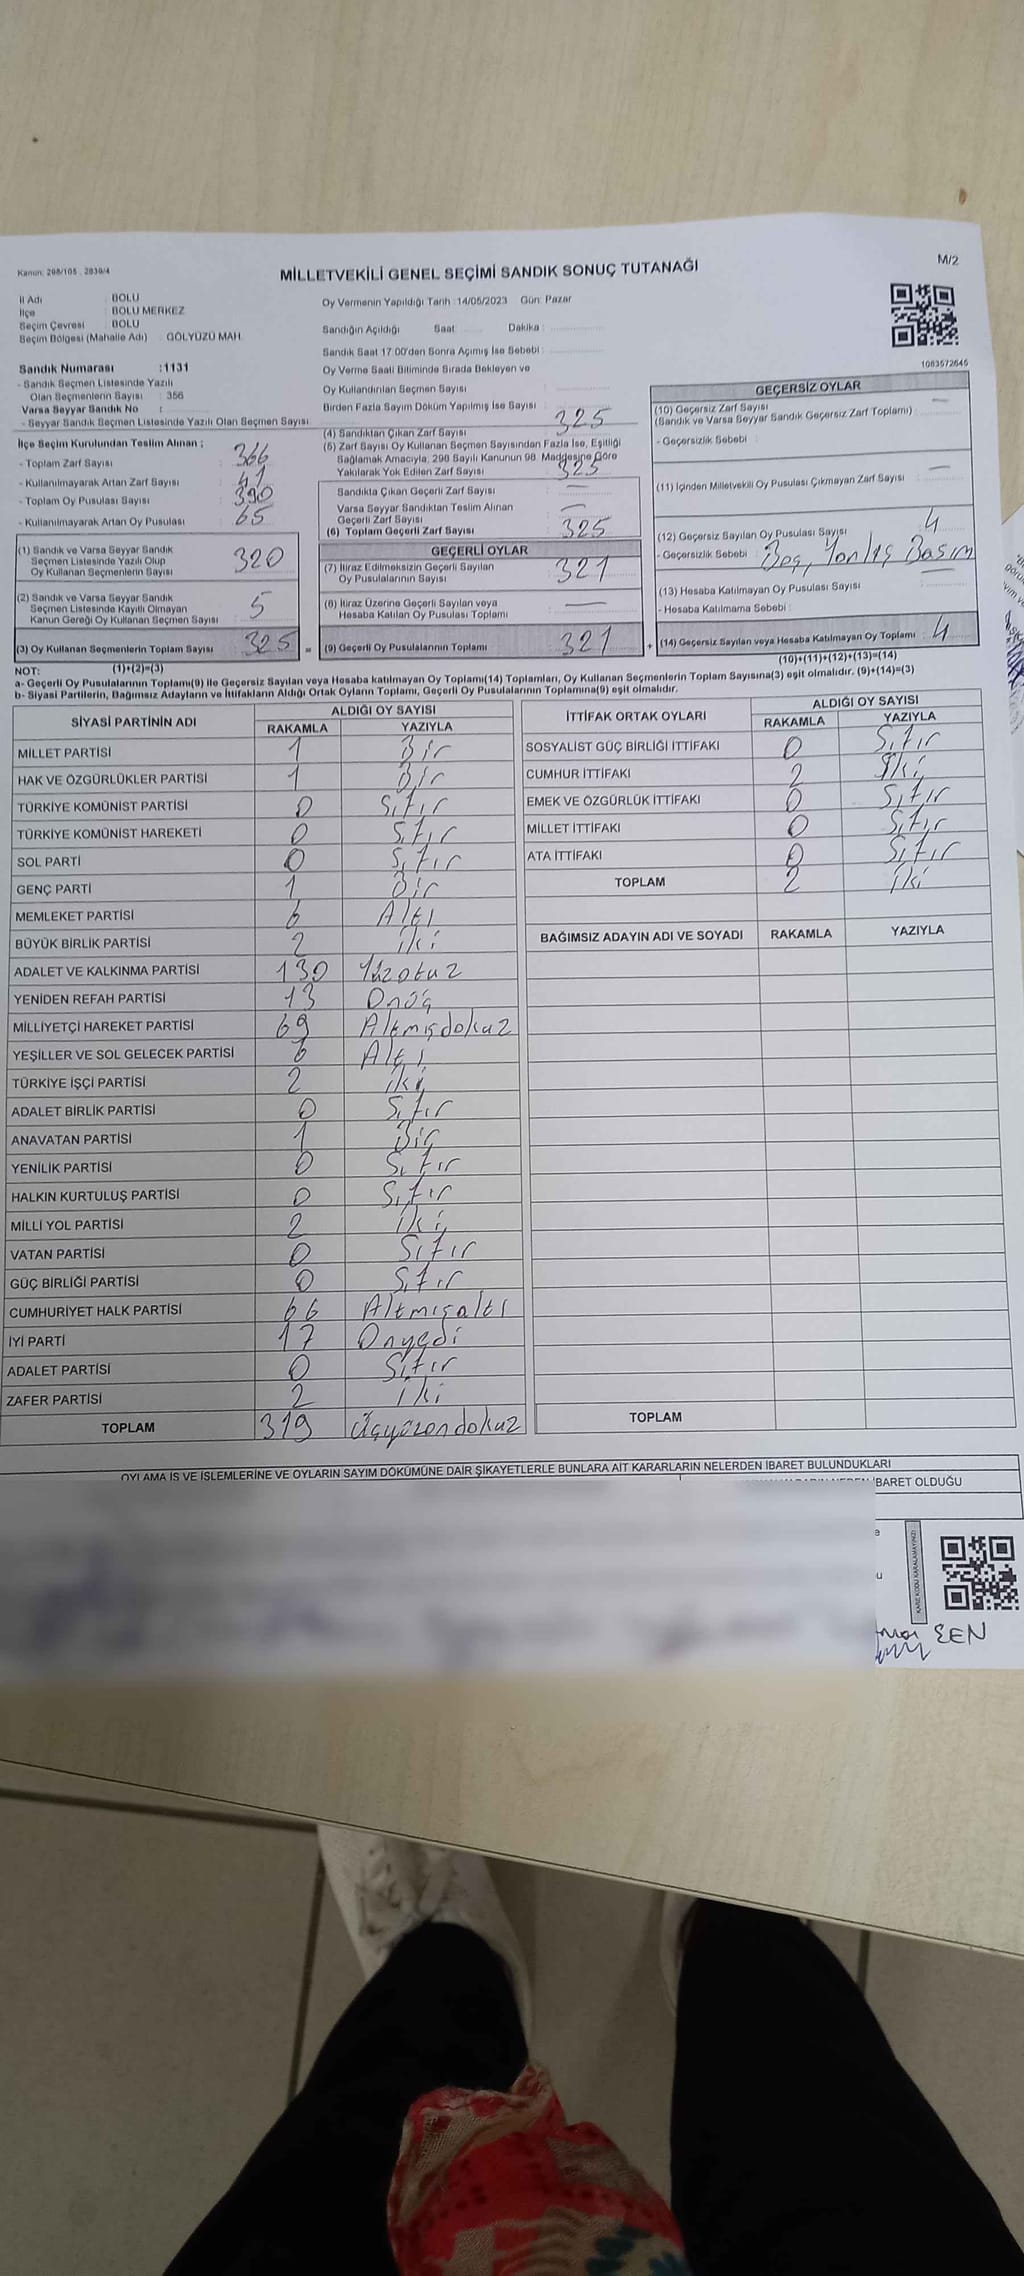 Kanun: 298/105 . 2839/4
MİLLETVEKİLİ GENEL SEÇİMİ SANDIK SONUÇ TUTANAĞI
M/2
İl Adı : BOLU
İlçe : BOLU MERKEZ
Seçim Çevresi : BOLU
Seçim Bölgesi (Mahalle Adı) : GÖLYÜZÜ MAH.
Sandık Numarası :1131
- Sandık Seçmen Listesinde Yazılı
Olan Seçmenlerin Sayısı : 356
Varsa Seyyar Sandık No :
- Seyyar Sandık Seçmen Listesinde Yazılı Olan Seçmen Sayısı
İlçe Seçim Kurulundan Teslim Alınan ;
- Toplam Zarf Sayısı : 366
- Kullanılmayarak Artan Zarf Sayısı : 41
- Toplam Oy Pusulası Sayısı : 390
- Kullanılmayarak Artan Oy Pusulası 65
(1) Sandık ve Varsa Seyyar Sandık
Seçmen Listesinde Yazılı Olup
Oy Kullanan Seçmenlerin Sayısı 320
(2) Sandık ve Varsa Seyyar Sandık
Seçmen Listesinde Kayıtlı Olmayan
Kanun Gereği Oy Kullanan Seçmen Sayısı : 5
(3) Oy Kullanan Seçmenlerin Toplam Sayısı 325 =
Oy Vermenin Yapıldığı Tarih :14/05/2023 Gün: Pazar
Sandığın Açıldığı Saat: Dakika :
Sandık Saat 17.00'den Sonra Açımış İse Sebebi :
Oy Verme Saati Bitiminde Sırada Bekleyen ve
Oy Kullandırılan Seçmen Sayısı :
Birden Fazla Sayım Döküm Yapılmış İse Sayısı :
(4) Sandıktan Çıkan Zarf Sayısı 325
(5) Zarf Sayısı Oy Kullanan Seçmen Sayısından Fazla İse, Eşitliği
Sağlamak Amacıyla, 298 Sayılı Kanunun 98. Maddesine Göre
Yakılarak Yok Edilen Zarf Sayısı : 325
Sandıkta Çıkan Geçerli Zarf Sayısı —
Varsa Seyyar Sandıktan Teslim Alınan
Geçerli Zarf Sayısı —
(6) Toplam Geçerli Zarf Sayısı 325
GEÇERLİ OYLAR
(7) İtiraz Edilmeksizin Geçerli Sayılan
Oy Pusulalarının Sayısı 321
(8) İtiraz Üzerine Geçerli Sayılan veya
Hesaba Katılan Oy Pusulası Toplamı —
(9) Geçerli Oy Pusulalarının Toplamı 321 +
1083572645
GEÇERSİZ OYLAR
(10) Geçersiz Zarf Sayısı —
(Sandık ve Varsa Seyyar Sandık Geçersiz Zarf Toplamı) :
- Geçersizlik Sebebi :
(11) İçinden Milletvekili Oy Pusulası Çıkmayan Zarf Sayısı : —
(12) Geçersiz Sayılan Oy Pusulası Sayısı : 4
- Geçersizlik Sebebi : Boş, Yanlış Basım
(13) Hesaba Katılmayan Oy Pusulası Sayısı : —
- Hesaba Katılmama Sebebi :
(14) Geçersiz Sayılan veya Hesaba Katılmayan Oy Toplamı 4
(10)+(11)+(12)+(13)=(14)
NOT: (1)+(2)=(3)
a- Geçerli Oy Pusulalarının Toplamı(9) ile Geçersiz Sayılan veya Hesaba katılmayan Oy Toplamı(14) Toplamları, Oy Kullanan Seçmenlerin Toplam Sayısına(3) eşit olmalıdır. (9)+(14)=(3)
b- Siyasi Partilerin, Bağımsız Adayların ve İttifakların Aldığı Ortak Oyların Toplamı, Geçerli Oy Pusulalarının Toplamına(9) eşit olmalıdır.
SİYASİ PARTİNİN ADI ALDIĞI OY SAYISI
RAKAMLA YAZIYLA
MİLLET PARTİSİ 1 Bir
HAK VE ÖZGÜRLÜKLER PARTİSİ 1 Bir
TÜRKİYE KOMÜNİST PARTİSİ 0 Sıfır
TÜRKİYE KOMÜNİST HAREKETİ 0 Sıfır
SOL PARTİ 0 Sıfır
GENÇ PARTİ 1 Bir
MEMLEKET PARTİSİ 6 Altı
BÜYÜK BİRLİK PARTİSİ 2 iki
ADALET VE KALKINMA PARTİSİ 130 Yüzotuz
YENİDEN REFAH PARTİSİ 13 Onüç
MİLLİYETÇİ HAREKET PARTİSİ 69 Altmışdokuz
YEŞİLLER VE SOL GELECEK PARTİSİ 6 Altı
TÜRKİYE İŞÇİ PARTİSİ 2 iki
ADALET BİRLİK PARTİSİ 0 Sıfır
ANAVATAN PARTİSİ 1 Bir
YENİLİK PARTİSİ 0 Sıfır
HALKIN KURTULUŞ PARTİSİ 0 Sıfır
MİLLİ YOL PARTİSİ 2 iki
VATAN PARTİSİ 0 Sıfır
GÜÇ BİRLİĞİ PARTİSİ 0 Sıfır
CUMHURİYET HALK PARTİSİ 66 Altmışaltı
İYİ PARTİ 17 Onyedi
ADALET PARTİSİ 0 Sıfır
ZAFER PARTİSİ 2 iki
TOPLAM 319 Üçyüzondokuz
İTTİFAK ORTAK OYLARI ALDIĞI OY SAYISI
RAKAMLA YAZIYLA
SOSYALİST GÜÇ BİRLİĞİ İTTİFAKI 0 Sıfır
CUMHUR İTTİFAKI 2 İki
EMEK VE ÖZGÜRLÜK İTTİFAKI 0 Sıfır
MİLLET İTTİFAKI 0 Sıfır
ATA İTTİFAKI 0 Sıfır
TOPLAM 2 iki
BAĞIMSIZ ADAYIN ADI VE SOYADI RAKAMLA YAZIYLA
TOPLAM
OYLAMA İŞ VE İŞLEMLERİNE VE OYLARIN SAYIM DÖKÜMÜNE DAİR ŞİKAYETLERLE BUNLARA AİT KARARLARIN NELERDEN İBARET BULUNDUKLARI
İBARET OLDUĞU
KARE KODU KARALAMAYINIZ!